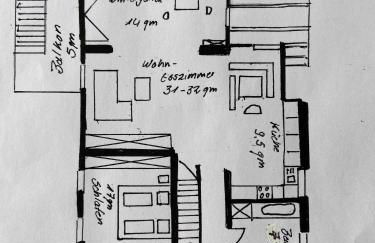 14 qm
Balkon
5 qm
Wohn-
Esszimmer
31-32 qm
Küche
9,5 qm
17 qm
Schlafen